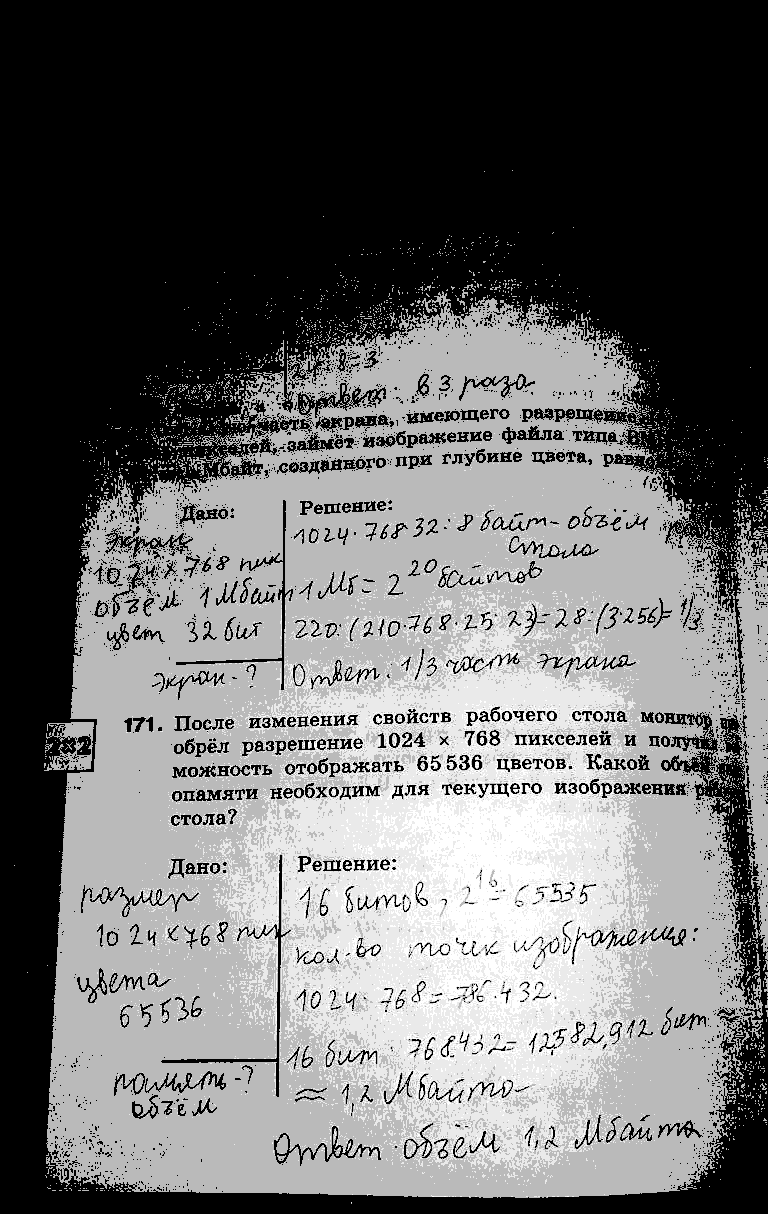 24:8=3
Ответ: в 3 раза
часть экрана, имеющего разрешение
займёт изображение файла типа
Мбайт, созданного при глубине цвета,
Дано:
Решение:
экран
1024×768 пик
объём 1 Мбайт
цвет 32 бит
экран-?
1024·768·32:8 байт-объём
стола
1Мб=2^20 байтов
220:(210·768·25:23)=28:(3·256)=1/3
Ответ: 1/3 часть экрана
171. После изменения свойств рабочего стола монитор
обрёл разрешение 1024 × 768 пикселей и получил
можность отображать 65 536 цветов. Какой объём
опамяти необходим для текущего изображения
стола?
Дано:
Решение:
размер
1024×768 пик
цвета
65536
память-?
объём
16 битов, 2^16=65535
кол-во точек изображения:
1024·768=786.432.
16 бит · 768.432=12,582,912 бит ≈
≈ 1,2 Мбайта
Ответ: объём 1,2 Мбайта